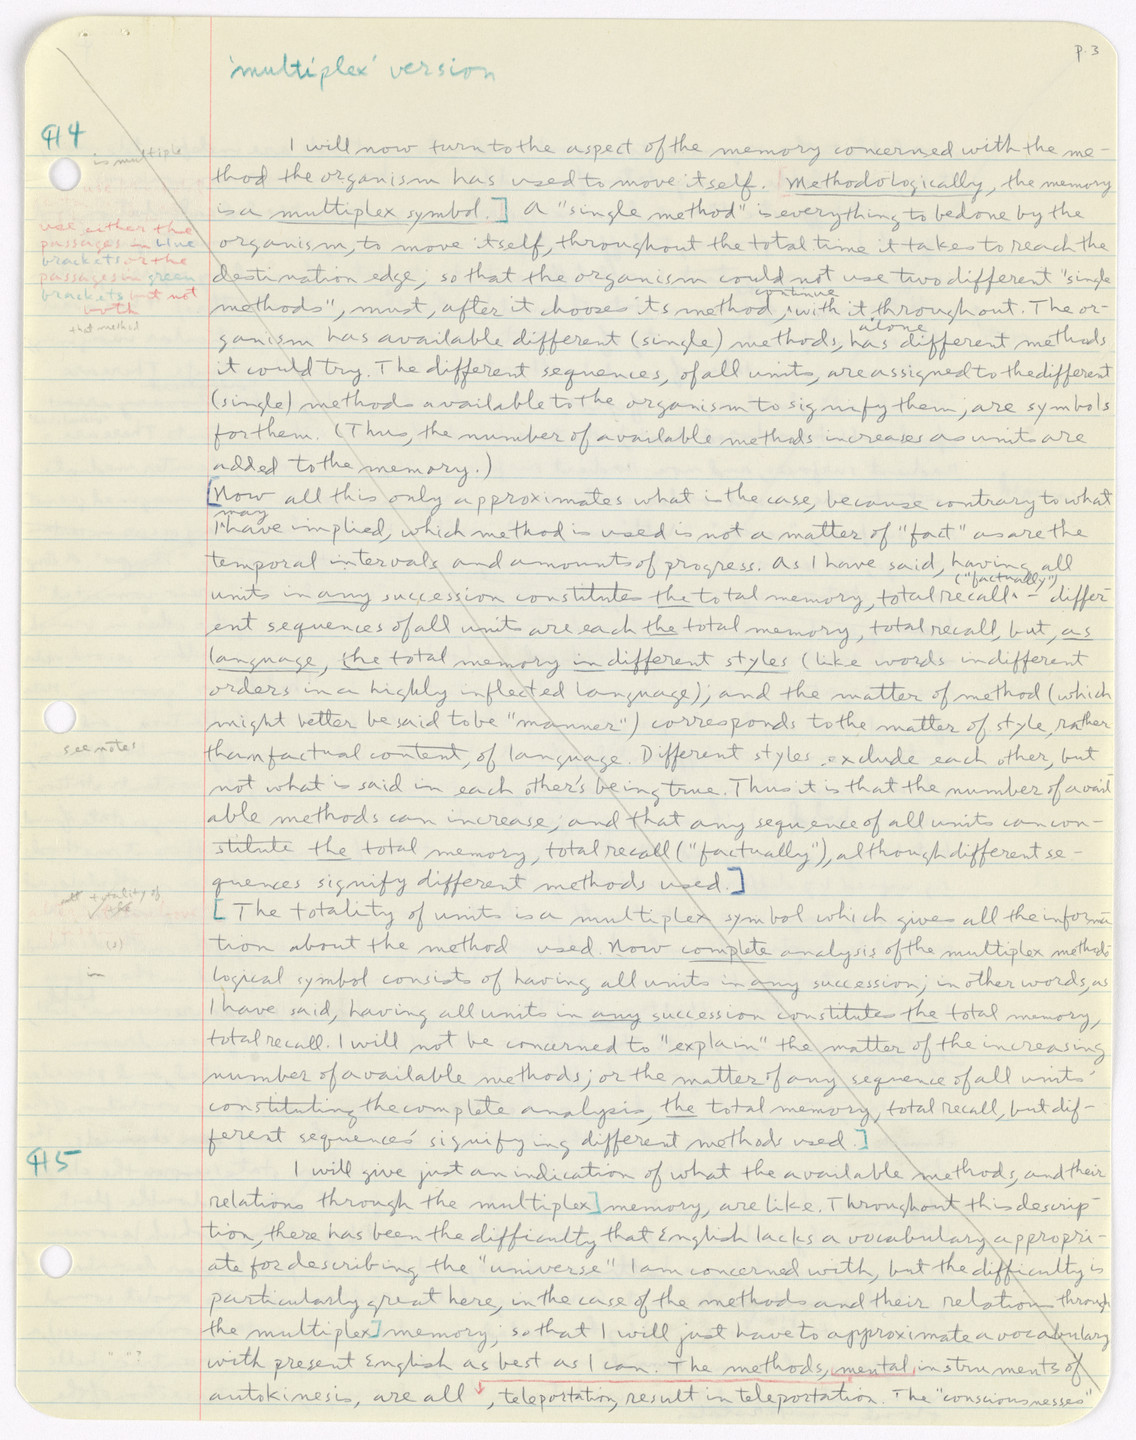 p.3
'multiplex' version
¶4
is multiple
I will now turn to the aspect of the memory concerned with the me-
thod the organism has used to move itself. Methodologically, the memory
is a multiplex symbol.] A "single method" is everything to be done by the
use either the
passages in blue
brackets or the
passages in green
brackets but not
both
that method
organism, to move itself, throughout the total time it takes to reach the
destination edge; so that the organism could not use two different "single
continue
methods", must, after it chooses its method, with it throughout. The or-
alone
ganism has available different (single) methods, has different methods
it could try. The different sequences, of all units, are assigned to the different
(single) methods available to the organism to signify them; are symbols
for them. (Thus, the number of available methods increases as units are
added to the memory.)
[Now all this only approximates what is the case, because contrary to what
may
I have implied, which method is used is not a matter of "fact" as are the
temporal intervals and amounts of progress. As I have said, having all
("factually")
units in any succession constitutes the total memory, total recall - differ-
ent sequences of all units are each the total memory, total recall, but, as
language, the total memory in different styles (like words in different
orders in a highly inflected language); and the matter of method (which
might better be said to be "manner") corresponds to the matter of style, rather
see notes
than factual content, of language. Different styles exclude each other, but
not what is said in each other's being true. Thus it is that the number of avail-
able methods can increase, and that any sequence of all units can con-
stitute the total memory, total recall ("factually"), although different se-
quences signify different methods used.]
totality of
[The totality of units is a multiplex symbol which gives all the informa-
(s)
tion about the method used. Now complete analysis of the multiplex methodo-
in
logical symbol consists of having all units in any succession; in other words, as
I have said, having all units in any succession constitutes the total memory,
total recall. I will not be concerned to "explain" the matter of the increasing
number of available methods; or the matter of any sequence of all units'
constituting the complete analysis, the total memory, total recall, but dif-
ferent sequences' signifying different methods used.]
¶5
I will give just an indication of what the available methods, and their
relations through the multiplex] memory, are like. Throughout this descrip-
tion, there has been the difficulty that English lacks a vocabulary appropri-
ate for describing the "universe" I am concerned with, but the difficulty is
particularly great here, in the case of the methods and their relations through
the multiplex] memory; so that I will just have to approximate a vocabulary
" "?
with present English as best as I can. The methods, mental instruments of
autokinesis, are all , teleportation, result in teleportation. The "consciousnesses"